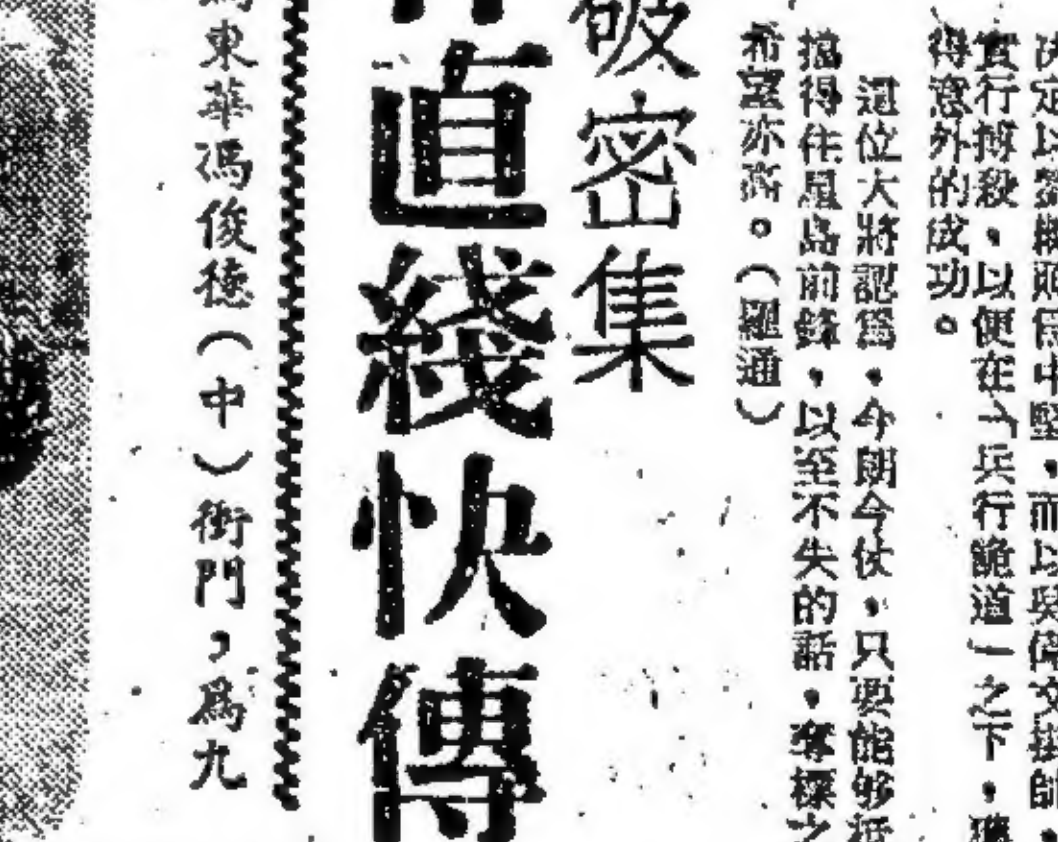 決定以黎機順爲中堅，而以吳偉文掛帥，
實行搏殺，以便在「兵行詭道」之下，獲
得意外的成功。
這位大將認爲，今朗今仗，只要能够抵
擋得住星島前鋒，以至不失的話，奪標之
希望亦高。（羅通）
破密集
直綫快傳
東華馮俊德（中）衝門，爲九